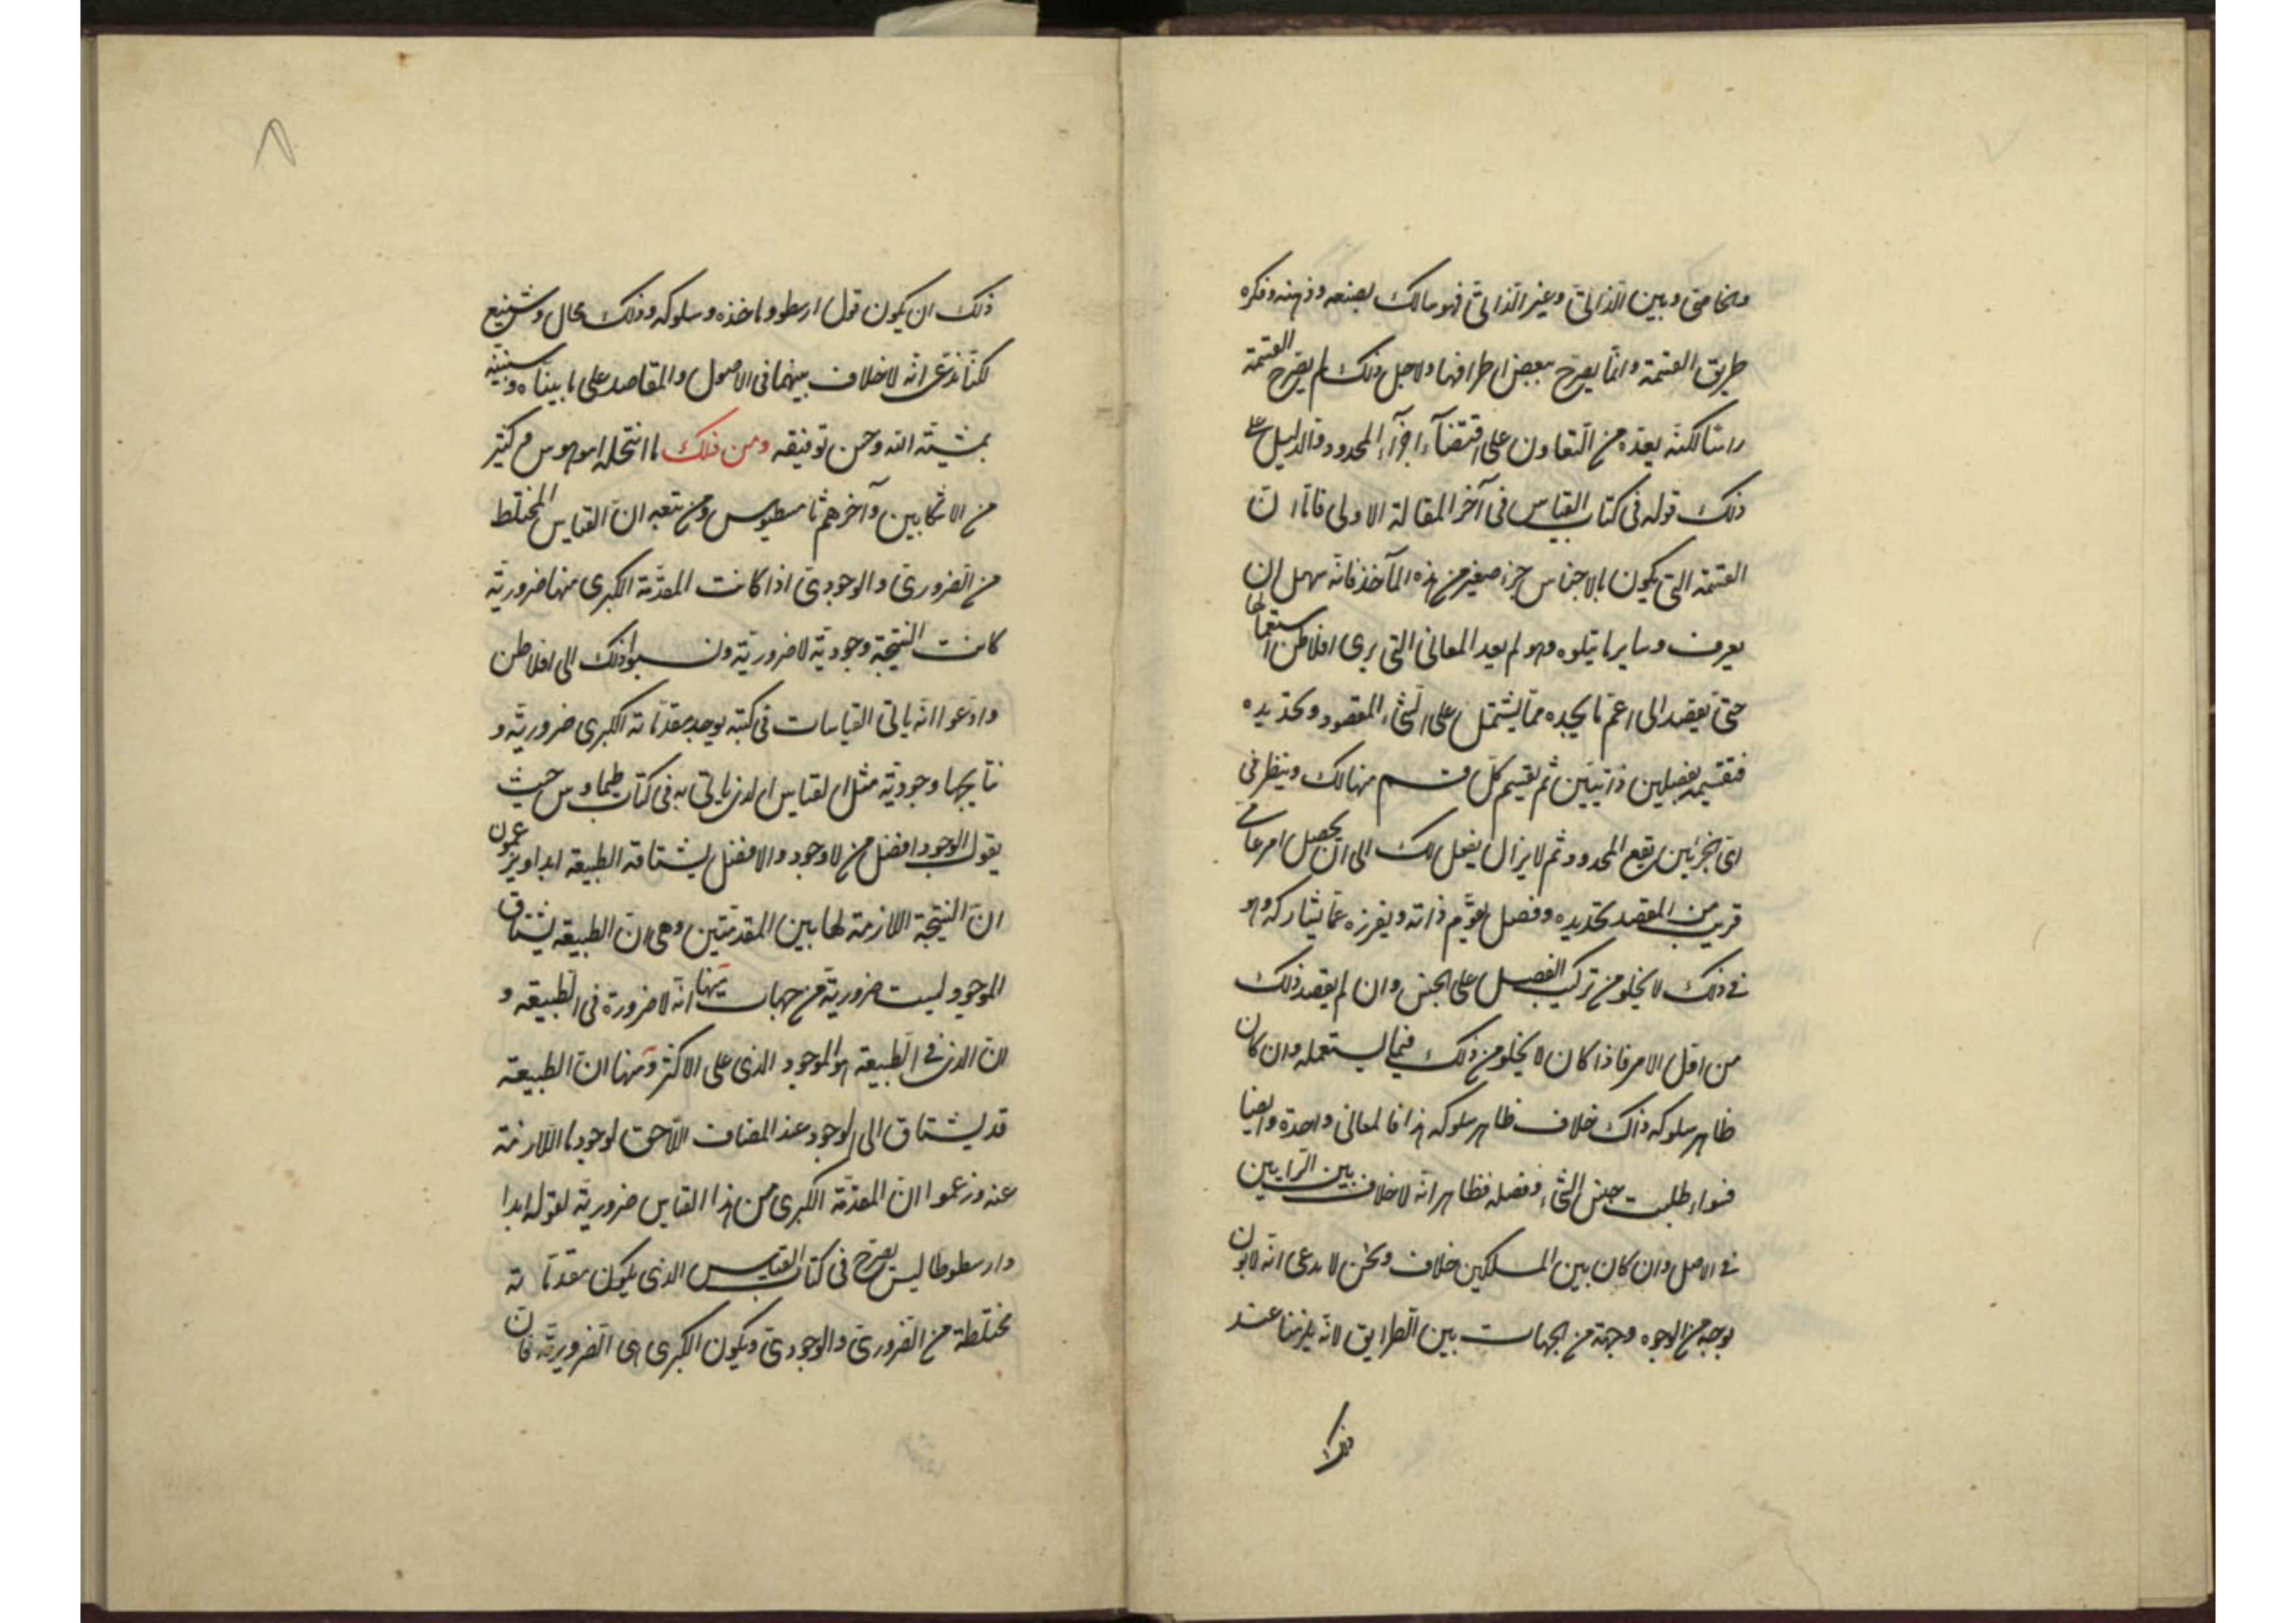 والخاصى وبين الذاتى وغير الذاتى فهو سالك بصنعه وذهنه وفكره
طريق القسمة وانما يصرح ببعض اطرافها ولاجل ذلك لم يصرح القسمة
راسا لكنه يعده من التعاون على اقتضاء اجزاء المحدود والدليل على
ذلك قوله فى كتاب القياس فى آخر المقالة الاولى فاما ان
القسمة التى يكون بالاجناس جزء صغير من هذه المآخذ فانه سهل ان
يعرف وساير ما يتلوه وهو لم يعد المعانى التى يرى افلاطن استعمالها
حتى يقصد الى اعم ما يجده مما يشتمل على الشىء المقصود وتحديده
فتقسيمه بفصلين ذاتيين ثم يقسيم كل قسم منها لك وينظر فى
اى الجزئين يقع المحدود ثم لا يزال يفعل لك الى ان يحصل امر عامى
قريب من المقصد تحديده وفصل يقوّم ذاته ويفرزه عما يشاركه وهو
فى ذلك لا يخلو من تركيب الفصل على الجنس وان لم يقصد ذلك
من اقل الامر فاذا كان لا يخلو من ذلك فيما يستعمله وان كان
ظاهر سلوكه ذاك خلاف ظاهر سلوكه هذا فالمعانى واحدة وايضا
فسواء طلبت جنس الشىء وفصله فظاهر انه لا خلاف بين الرايين
فى الاصل وان كان بين المسلكين خلاف ونحن لا ندعى انه لا بون
بوجه من الوجوه وجهة من الجهات بين الطرايق لانه يلزمنا عند
ذلك ان يكون قول ارسطو وماخذه وسلوكه وذلك محال وشنيع
لكنا ندعى انه لا خلاف بينهما فى الاصول والمقاصد على ما بيناه وسنبينه
بمشيته الله وحسن توفيقه ومن ذلك ما انتحله امونيوس م كثير
من الاسكابين وآخرهم ثامسطيوس ومن تبعه ان القياس المختلط
من الضرورى والوجودى اذا كانت المقدمة الكبرى منها ضرورية
كانت النتيجة وجودية لا ضرورية ونسبوا ذلك الى افلاطن
وادعوا انه ياتى القياسات فى كتبه يوجد مقدماته الكبرى ضرورية و
نتايجها وجودية مثل القياس الذى ياتى به فى كتاب طيماوس حيث
يقول الوجود افضل من لا وجود والافضل يشتاقه الطبيعه ابدا ويزعمون
ان النتيجة اللازمة لها بين المقدمتين وهى ان الطبيعه يشتاق
الموجود ليست ضرورية من جهات منها انه لا ضرورة فى الطبيعه و
ان الذى فى الطبيعه هو الموجود الذى على الاكثر ومنها ان الطبيعه
قد يشتاق الى الوجود عند المضاف اللاحق لوجود ما اللازمة
عنه وزعموا ان المقدمة الكبرى من هذا القياس ضرورية لقوله ابدا
وارسطوطاليس يصرح فى كتاب القياس الذى يكون مقدماته
مختلطة من الضرورى والوجودى ويكون الكبرى هى الضرويرية فان